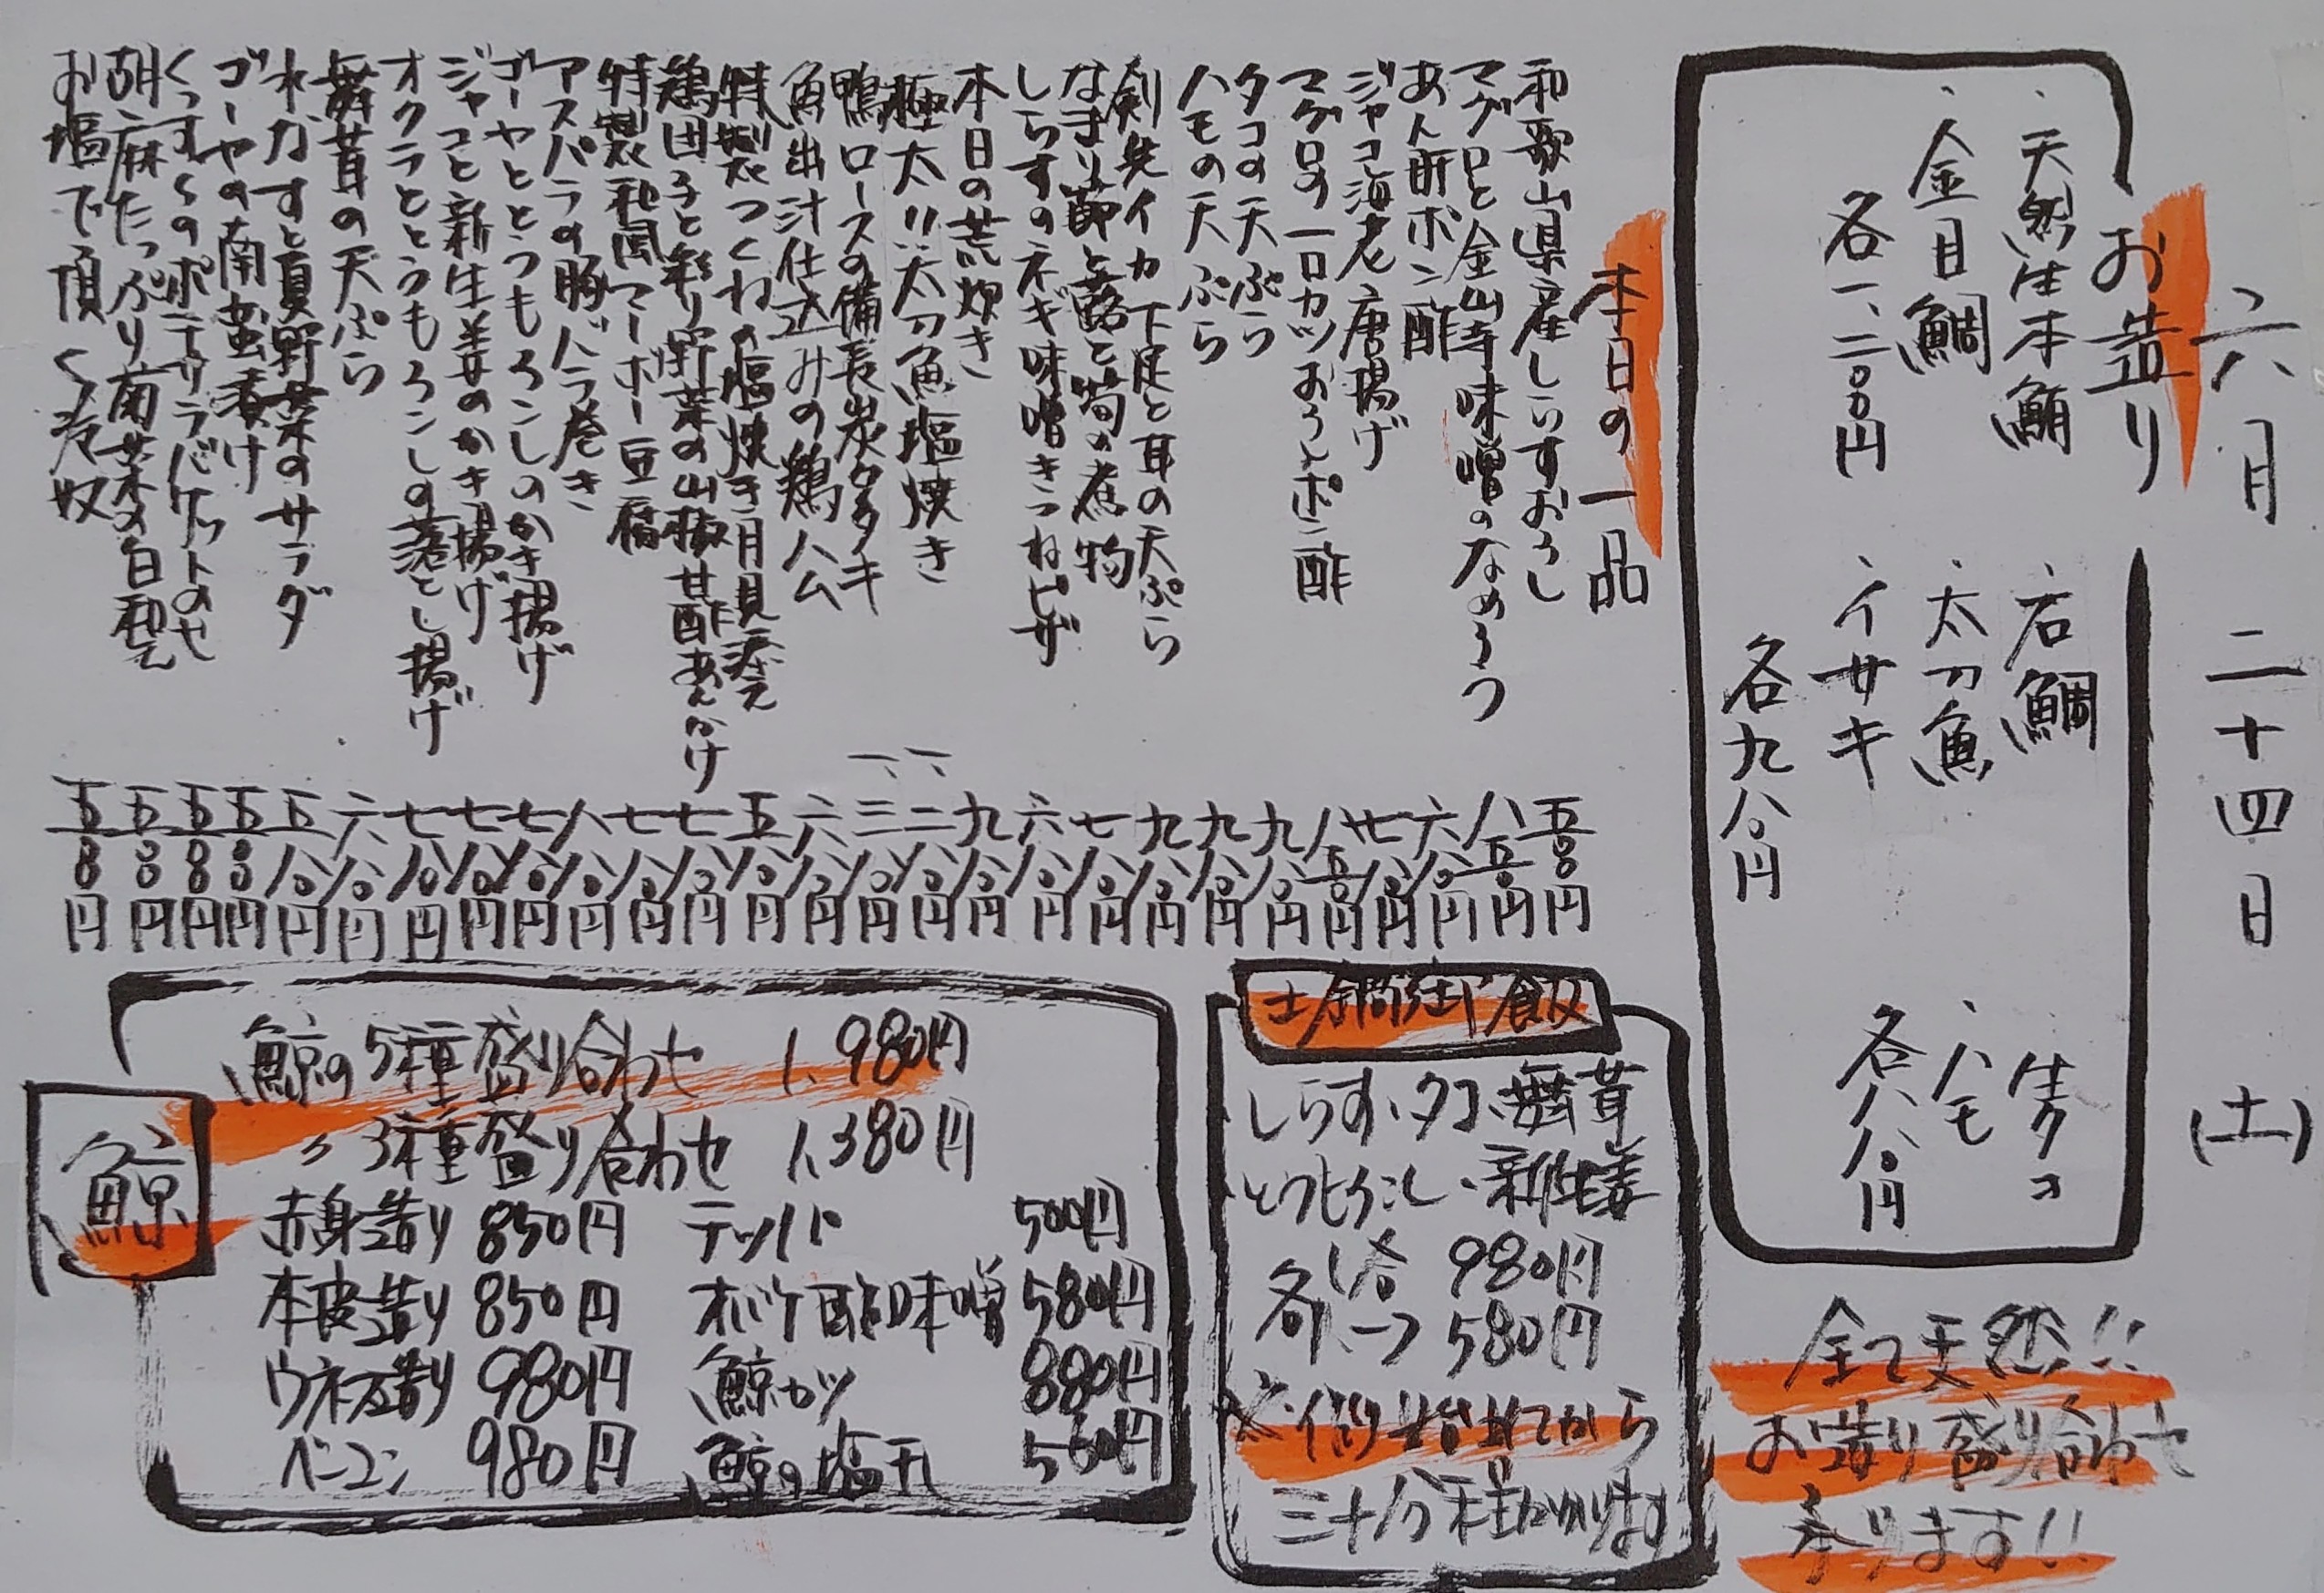 六月二十四日(土)
お造り
・天然生本鮪
・金目鯛
各一、二〇〇円
・石鯛
・太刀魚
・イサキ
各九八〇円
・生タコ
・ハモ
各八八〇円
全て天然!!
お造り盛り合わせ
承ります!!
本日の一品
和歌山県産しらすおろし 五〇〇円
マグロと金山寺味噌のなめろう 八五〇円
あん肝ポン酢 六八〇円
ジャコ海老唐揚げ 七八〇円
マグロの一口カツおろしポン酢 八五〇円
タコの天ぷら 九八〇円
ハモの天ぷら 九八〇円
剣先イカ下足と耳の天ぷら 九八〇円
なまり節と蕗と筍の煮物 七八〇円
しらすのネギ味噌きつねピザ 六八〇円
本日の荒炊き 九八〇円
極太!!太刀魚塩焼き 一、二八〇円
鴨ロースの備長炭タタキ 一、三八〇円
魚出汁仕込みの鶏ハム 六八〇円
特製つくねの塩焼き月見添え 五八〇円
鶏団子と彩り野菜の山椒甘酢あんかけ 七八〇円
特製和風マーボー豆腐 七八〇円
アスパラの豚バラ巻き 八八〇円
ゴーヤととうもろこしのかき揚げ 七八〇円
ジャコと新生姜のかき揚げ 七八〇円
オクラととうもろこしの落とし揚げ 七八〇円
舞茸の天ぷら 六八〇円
水ナスと夏野菜のサラダ 五八〇円
ゴーヤの南蛮漬け 五〇〇円
くつすくのポテサラバケットのせ 五〇〇円
胡麻たっぷり菊菜の白和え 五〇〇円
お塩で頂く冷奴 五〇〇円
土鍋御飯
しらす・タコ・舞茸
とうもろこし・新生姜
各1合 980円
各ハーフ 580円
※作り始めてから
三十分程かかります
鯨
鯨の5種盛り合わせ 1,980円
〃3種盛り合わせ 1,380円
赤身造り 850円
本皮造り 850円
ウネス造り 980円
ベーコン 980円
テッパ 500円
オバケ酢味噌 580円
鯨カツ 880円
鯨の塩干 560円